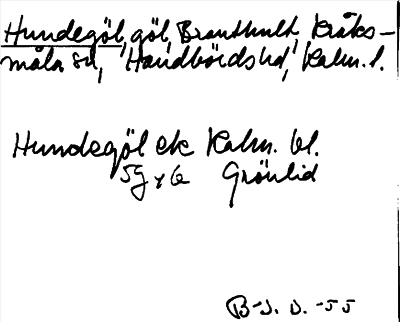 Hundegöl, göl, Branthult, Kråks-
måla sn, Handbörds hd, Kalm. l.
Hundegöl ek Kalm. bl.
5g y 6 Grönlid
B-J. D. -55